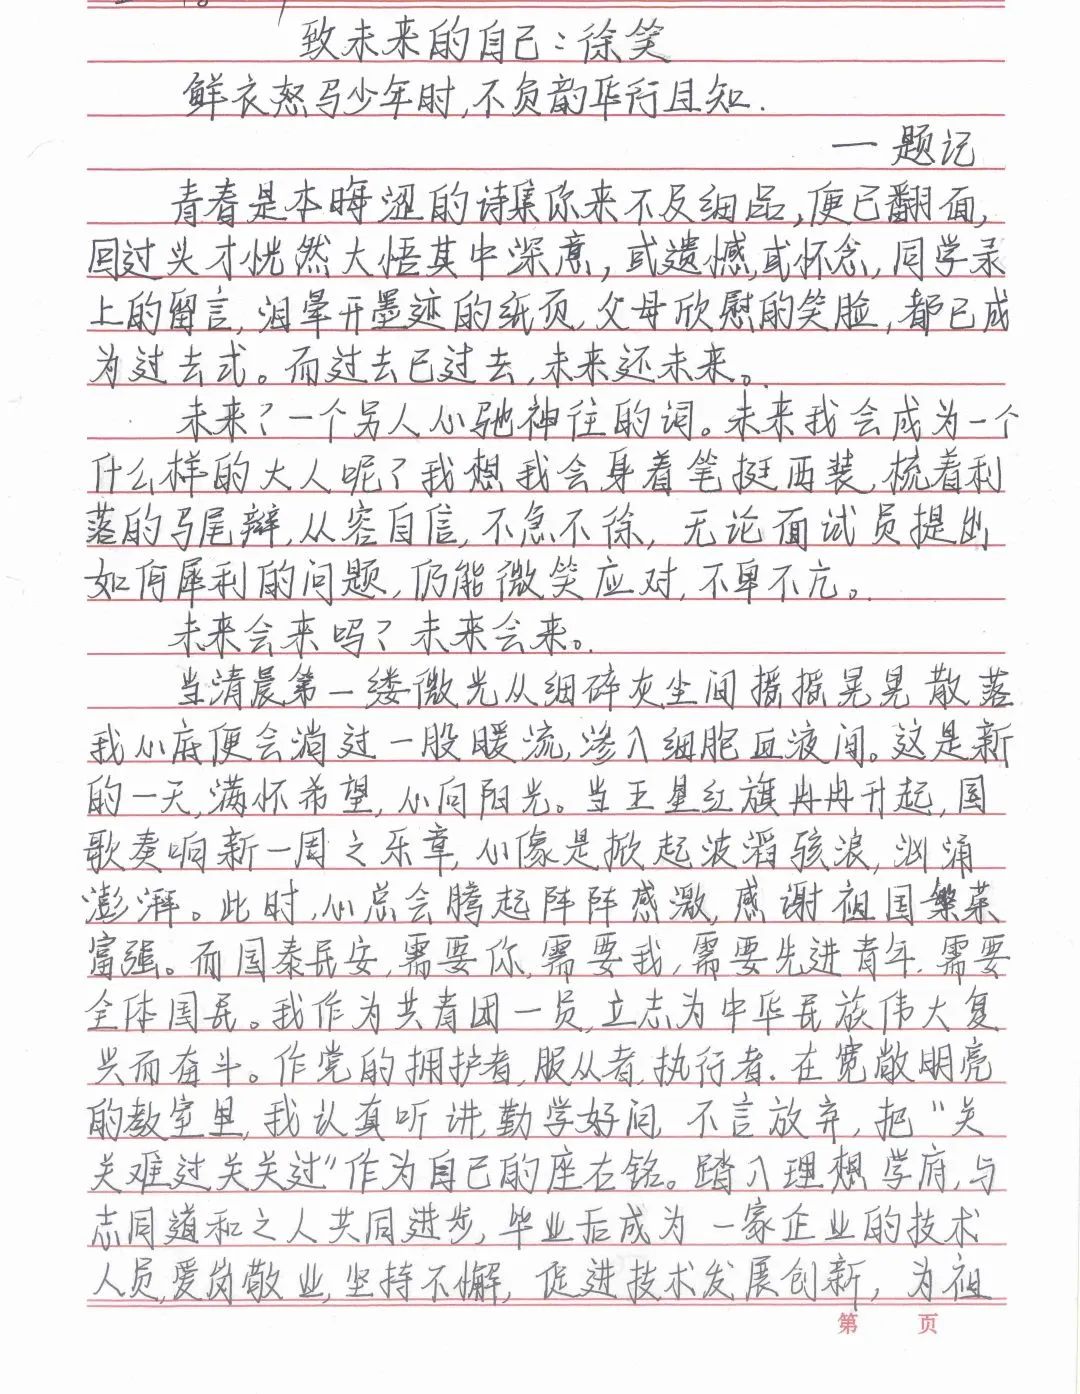 致未来的自己:徐笑
鲜衣怒马少年时,不负韵华行且知.
一题记
青春是本晦涩的诗集你来不及细品,便已翻面,
回过头才恍然大悟其中深意,或遗憾,或怀念,同学录
上的留言,泪晕开墨迹的纸页,父母欣慰的笑脸,都已成
为过去式。而过去已过去,未来还未来。
未来?一个另人心驰神往的词。未来我会成为一个
什么样的大人呢?我想我会身着笔挺西装,梳着利
落的马尾辫,从容自信,不急不徐,无论面试员提出
如何犀利的问题,仍能微笑应对,不卑不亢。
未来会来吗?未来会来。
当清晨第一缕微光从细碎灰尘间摇摇晃晃散落
我心底便会淌过一股暖流,渗入细胞血液间。这是新
的一天,满怀希望,心向阳光。当五星红旗冉冉升起,国
歌奏响新一周之乐章,心像是掀起波滔骇浪,汹涌
澎湃。此时,心总会腾起阵阵感激,感谢祖国繁荣
富强。而国泰民安,需要你,需要我,需要先进青年.需要
全体国民。我作为共青团一员,立志为中华民族伟大复
兴而奋斗。作党的拥护者,服从者,执行者.在宽敞明亮
的教室里,我认真听讲,勤学好问,不言放弃,把"关
关难过关关过"作为自己的座右铭。踏入理想学府,与
志同道和之人共同进步,毕业后成为一家企业的技术
人员,爱岗敬业,坚持不懈,促进技术发展创新,为祖
第 页